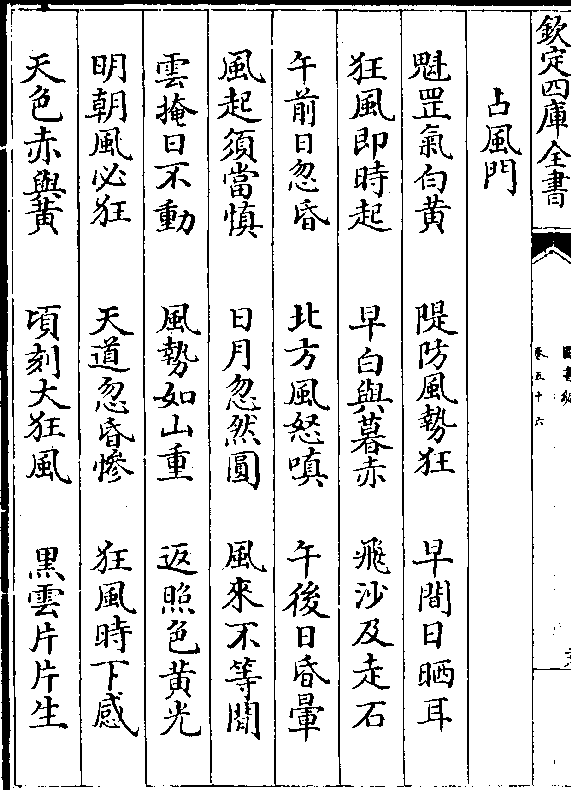 欽定四庫全書
圖書編
卷五十六
占風門
魁罡氣白黄　隄防風勢狂　早間日晒耳
狂風即時起　早白與暮赤　飛沙及走石
午前日忽昏　北方風怒嗔　午後日昏暈
風起須當慎　日月忽然圓　風來不等閒
雲掩日不動　風勢如山重　返照色黄光
明朝風必狂　天道忽昏慘　狂風時下感
天色赤與黄　頃刻大狂風　黒雲片片生